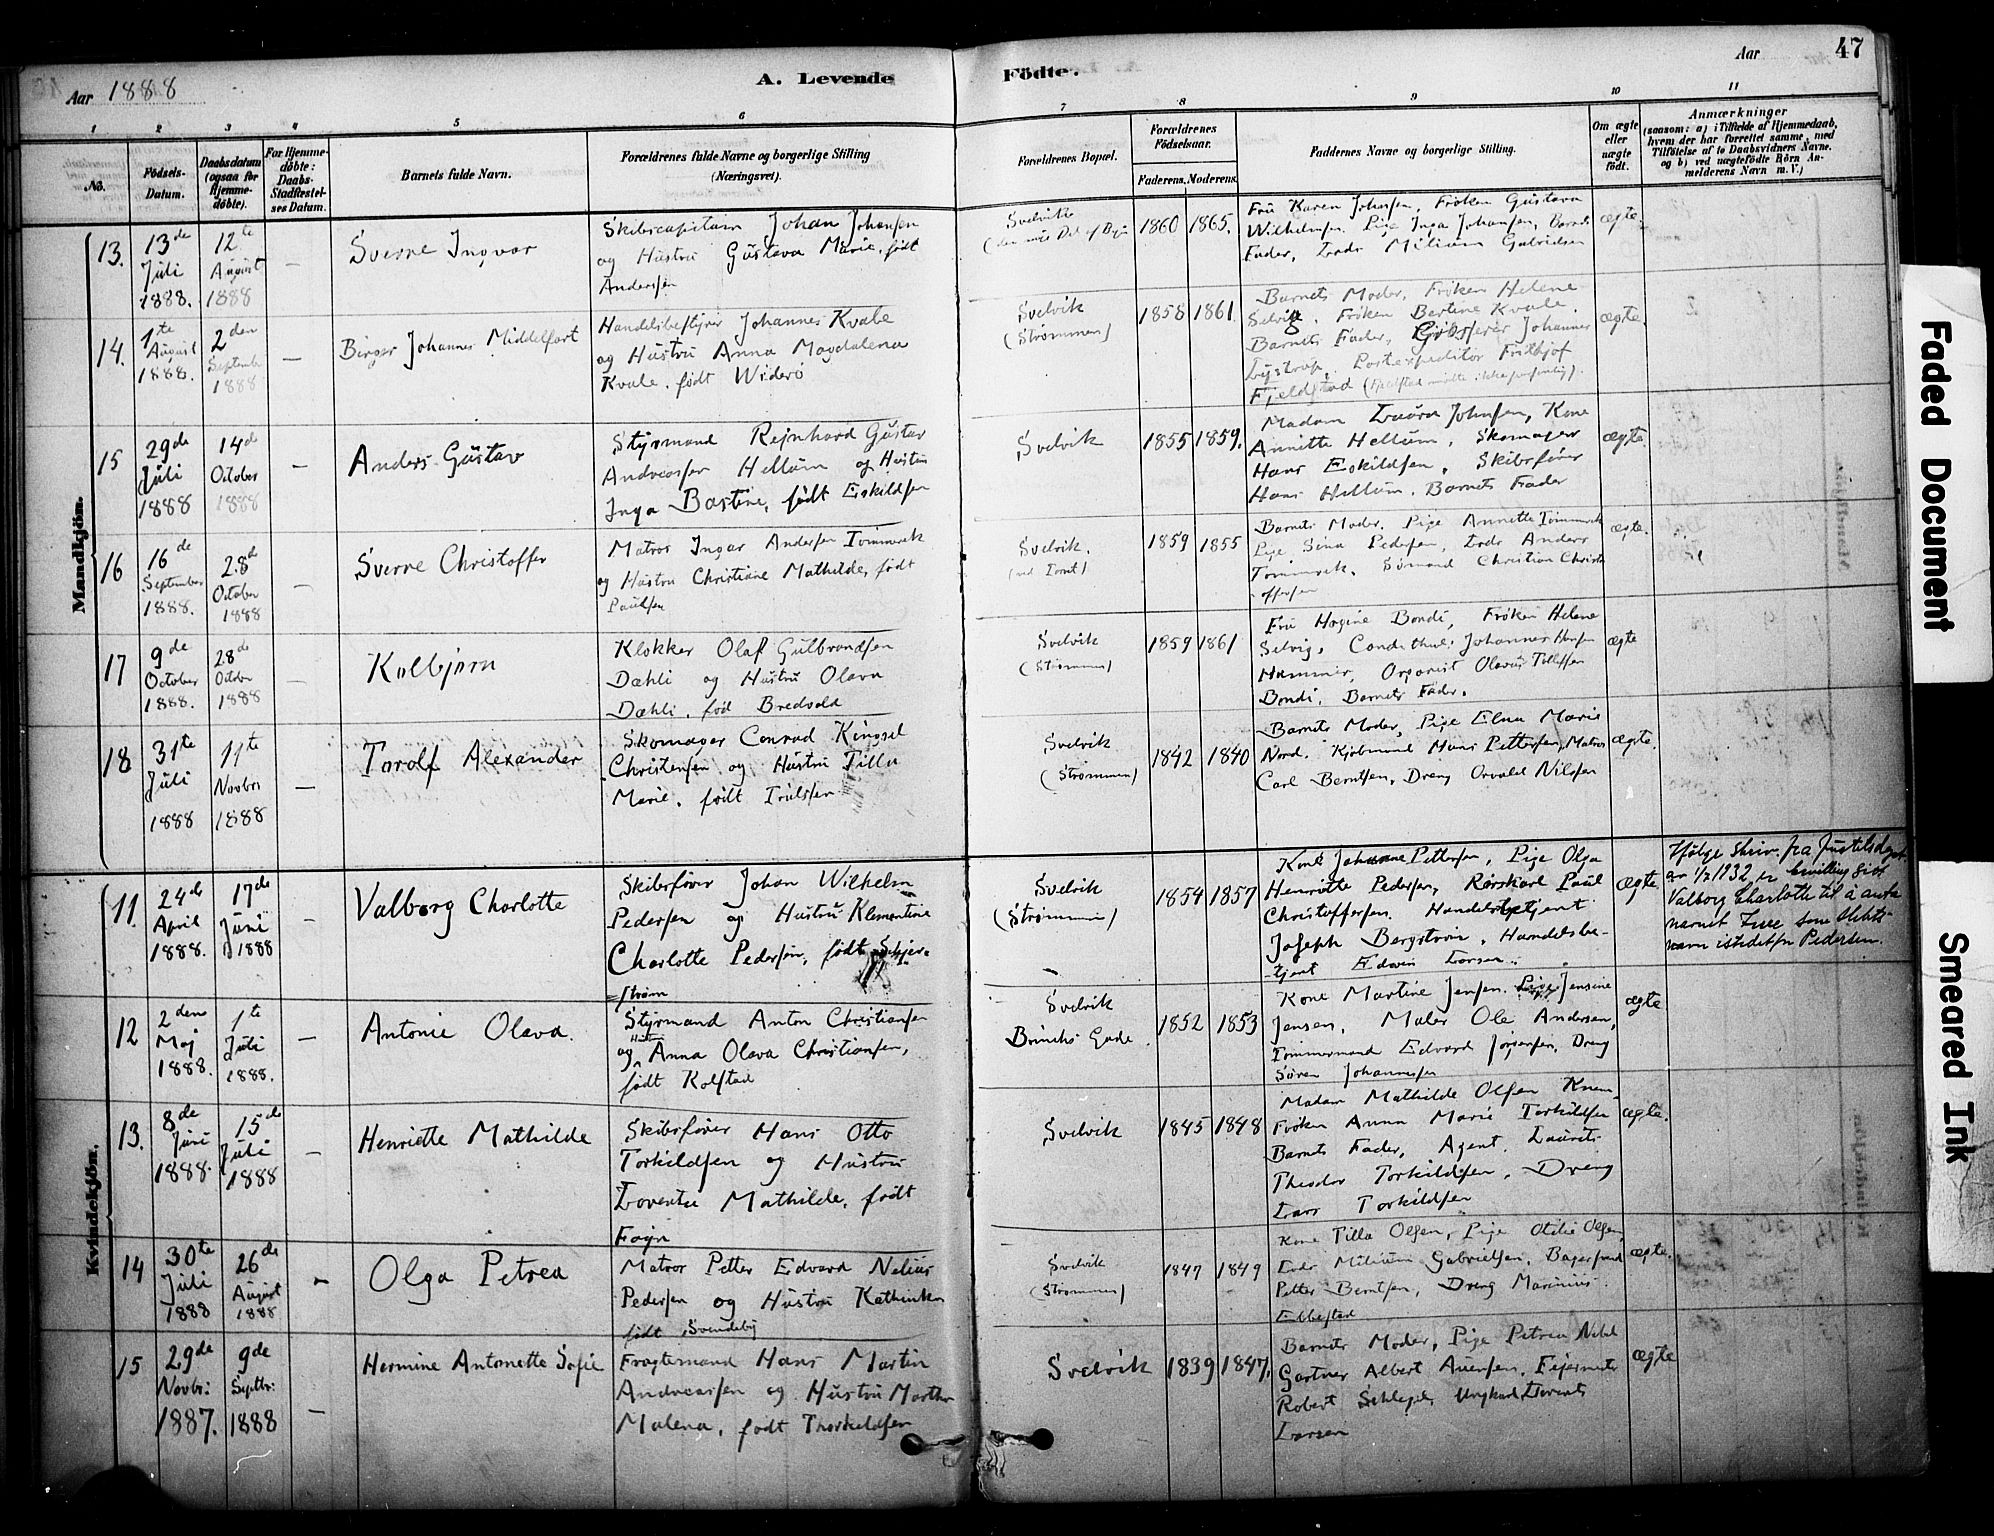 Aar 1888
A. Levende
Födte.
Aar
47
1 2 3 4 5 6 7 8 9 10 11
No.
Födsels-
Datum.
Daabsdatum
(ogsaa for
Hjemme-
döbte).
For Hjemme-
döbte:
Daabs-
Stadfæstel-
ses Datum.
Barnets fulde Navn.
Forældrenes fulde Navne og borgerlige Stilling
(Næringsvei).
Forældrenes Bopæl.
Forældrenes
Födselsaar.
Faderens. Moderens.
Faddernes Navne og borgerlige Stilling.
Om ægte
eller
uægte
födt.
Anmærkninger
(saasom: a) i Tilfælde af Hjemmedaab,
hvem der har forrettet samme, med
Tilföielse af to Daabsvidners Navne,
og b) ved uægtefödte Börn An-
melderens Navn m. V.)
Mandkjön.
13.
13de
Juli
1888.
12te
August
1888
—
Sverre Ingvar
Skibscapitain Johan Johansen
og Hustru Gustava Marie, født
Andersen
Svelvik
1860 1865.
Fru Karen Johnsen, Frøken Gustava
Wilhelmsen. Pige Inga Johansen, Barnets
Fader, Lods Milium Gabrielsen
ægte.
14.
1ste
August
1888.
2den
September
1888
—
Birger Johannes Middelfart
Handelsbestyrer Johannes Kvale
og Hustru Anna Magdalena
Kvale, født Widerø
Svelvik
(Strømmen)
1858 1861.
Barnets Moder, Frøken Helene
Selvig, Frøken Bertine Kvale
Barnets Fader, Johannes
Lystrup, Postexpeditor Frithjof
Fjeldstad (Fjeldstad mødte ikke personlig).
ægte.
15
29de
Juli
1888
14de
October
1888
—
Anders Gustav
Styrmand Rejnhard Gustav
Andreassen Hellum og Hustru
Inga Bastine, født Eskildsen
Svelvik
1855 1859.
Madam Laura Johnsen, Kone
Annette Hellum, Skomager
Hans Eskildsen, Skibsfører
Hans Hellum. Barnets Fader
ægte.
16
16de
September
1888.
28de
October
1888
—
Sverre Christoffer
Matros Ingar Andersen Tømmerak
og Hustru Christiane Mathilde, født
Paulsen
Svelvik.
1859 1855
Barnets Moder, Pige Annette Tømmerak
Pige Sina Pedersen, Lods Anders
Tømmerak, Sømand Christian Christ-
offersen
ægte.
17
9de
October
1888.
28de
October
1888
—
Kolbjørn
Klokker Olaf Gulbrandsen
Dæhli og Hustru Olava
Dæhli, fød Bredvold
Svelvik
(Strømmen)
1859 1861
Fru Hogine Bondi, Frøken Helene
Selvig, Cand. theol. Johannes Hansen
Hammer, Organist Olavus Tollefsen
Bondi, Barnets Fader.
ægte
18
31te
Juli
1888
11te
Novbr
1888
—
Torolf Alexander
Skomager Conrad Kingsel
Christensen og Hustru Tilla
Marie, født Trulsen
Svelvik
(Strømmen)
1842 1840
Barnets Moder, Pige Elna Marie
Nord. Kjøbmand Hans Pettersen, Matros
Carl Berntsen, Dreng Osvald Nilssen
ægte.
Kvindekjön.
11.
24de
April
1888.
17de
Juni
1888
—
Valborg Charlotte
Skibsfører Johan Wilhelm
Pedersen og Hustru Klementine
Charlotte Pedersen, født Schjer-
strøm
Svelvik
(Strømmen)
1854 1857
Kone Johanne Pettersen, Pige Olga
Henriette Pedersen, Rorskarl Paul
Christoffersen. Handelsbetjent
Joseph Bergstrøm, Handelsbe-
tjent Edvin Larsen.
ægte
Ifølge skriv. fra Justitsdept.
av 1/2 1932 er bevilling gitt
Valborg Charlotte til å anta
navnet Tree som slekts-
navn istedetfor Pedersen.
12
2den
Maj
1888.
1ste
Juli
1888.
—
Antonie Olava.
Styrmand Anton Christiansen
og Hustru Anna Olava Christiansen,
født Kolstad
Svelvik
Brinchs Gade.
1852 1853
Kone Martine Jensen. Pige Jensine
Jensen, Maler Ole Andersen,
Tømmermand Edvard Jørgensen, Dreng
Søren Johannesen
ægte
13.
8de
Juni
1888.
15de
Juli
1888
—
Henriette Mathilde
Skibsfører Hans Otto
Torkildsen og Hustru
Loventse Mathilde, født
Fagn
Svelvik
1845 1848
Madam Mathilde Olsen Knem-
Frøken Anna Marie Torkildsen
Barnets Fader, Agent Laurits
Theodor Torkildsen, Dreng
Lars Torkildsen
ægte.
14
30te
Juli
1888
26de
August
1888
—
Olga Petrea
Matros Petter Edvard Nelius
Pedersen og Hustru Kathinka
født Svendeby
Svelvik
(Strømmen)
1847 1849
Kone Tilla Olsen, Pige Otilie Olsen,
Lods Milium Gabrielsen, Bagersvend
Petter Berntsen, Dreng Marinius
Ebbestad
ægte.
15
29de
Novbr:
1887.
9de
Septbr:
1888
—
Hermine Antonette Sofie
Fragtemand Hans Martin
Andreassen og Hustru Marthe
Malena, født Thorkildsen
Svelvik
1839 1847.
Barnets Moder, Pige Petrea Nebel
Gartner Albert Auensen, Fejermester
Robert Schlegel, Ungkarl Lorents
Larsen
ægte
Faded Document
Smeared Ink